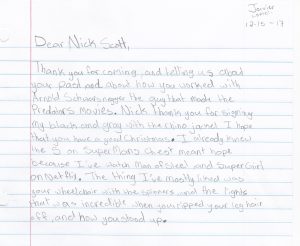 Javier
12-15-17
Dear Nick Scott,
Thank you for coming, and telling us about
your past and about how you worked with
Arnold Schwarzenegger the guy that made the
Predators movies. Nick, thank you for signing
my black and gray with the china jacket I hope
that you have a good Christmas. I already knew
the S on SuperMan's chest meant hope
because I've watch Man of Steel and SuperGirl
on Netflix. The thing I've mostly liked was
your wheelchair with the spinners and the lights
that was incredible when you ripped your leg hair
off, and how you stood up.